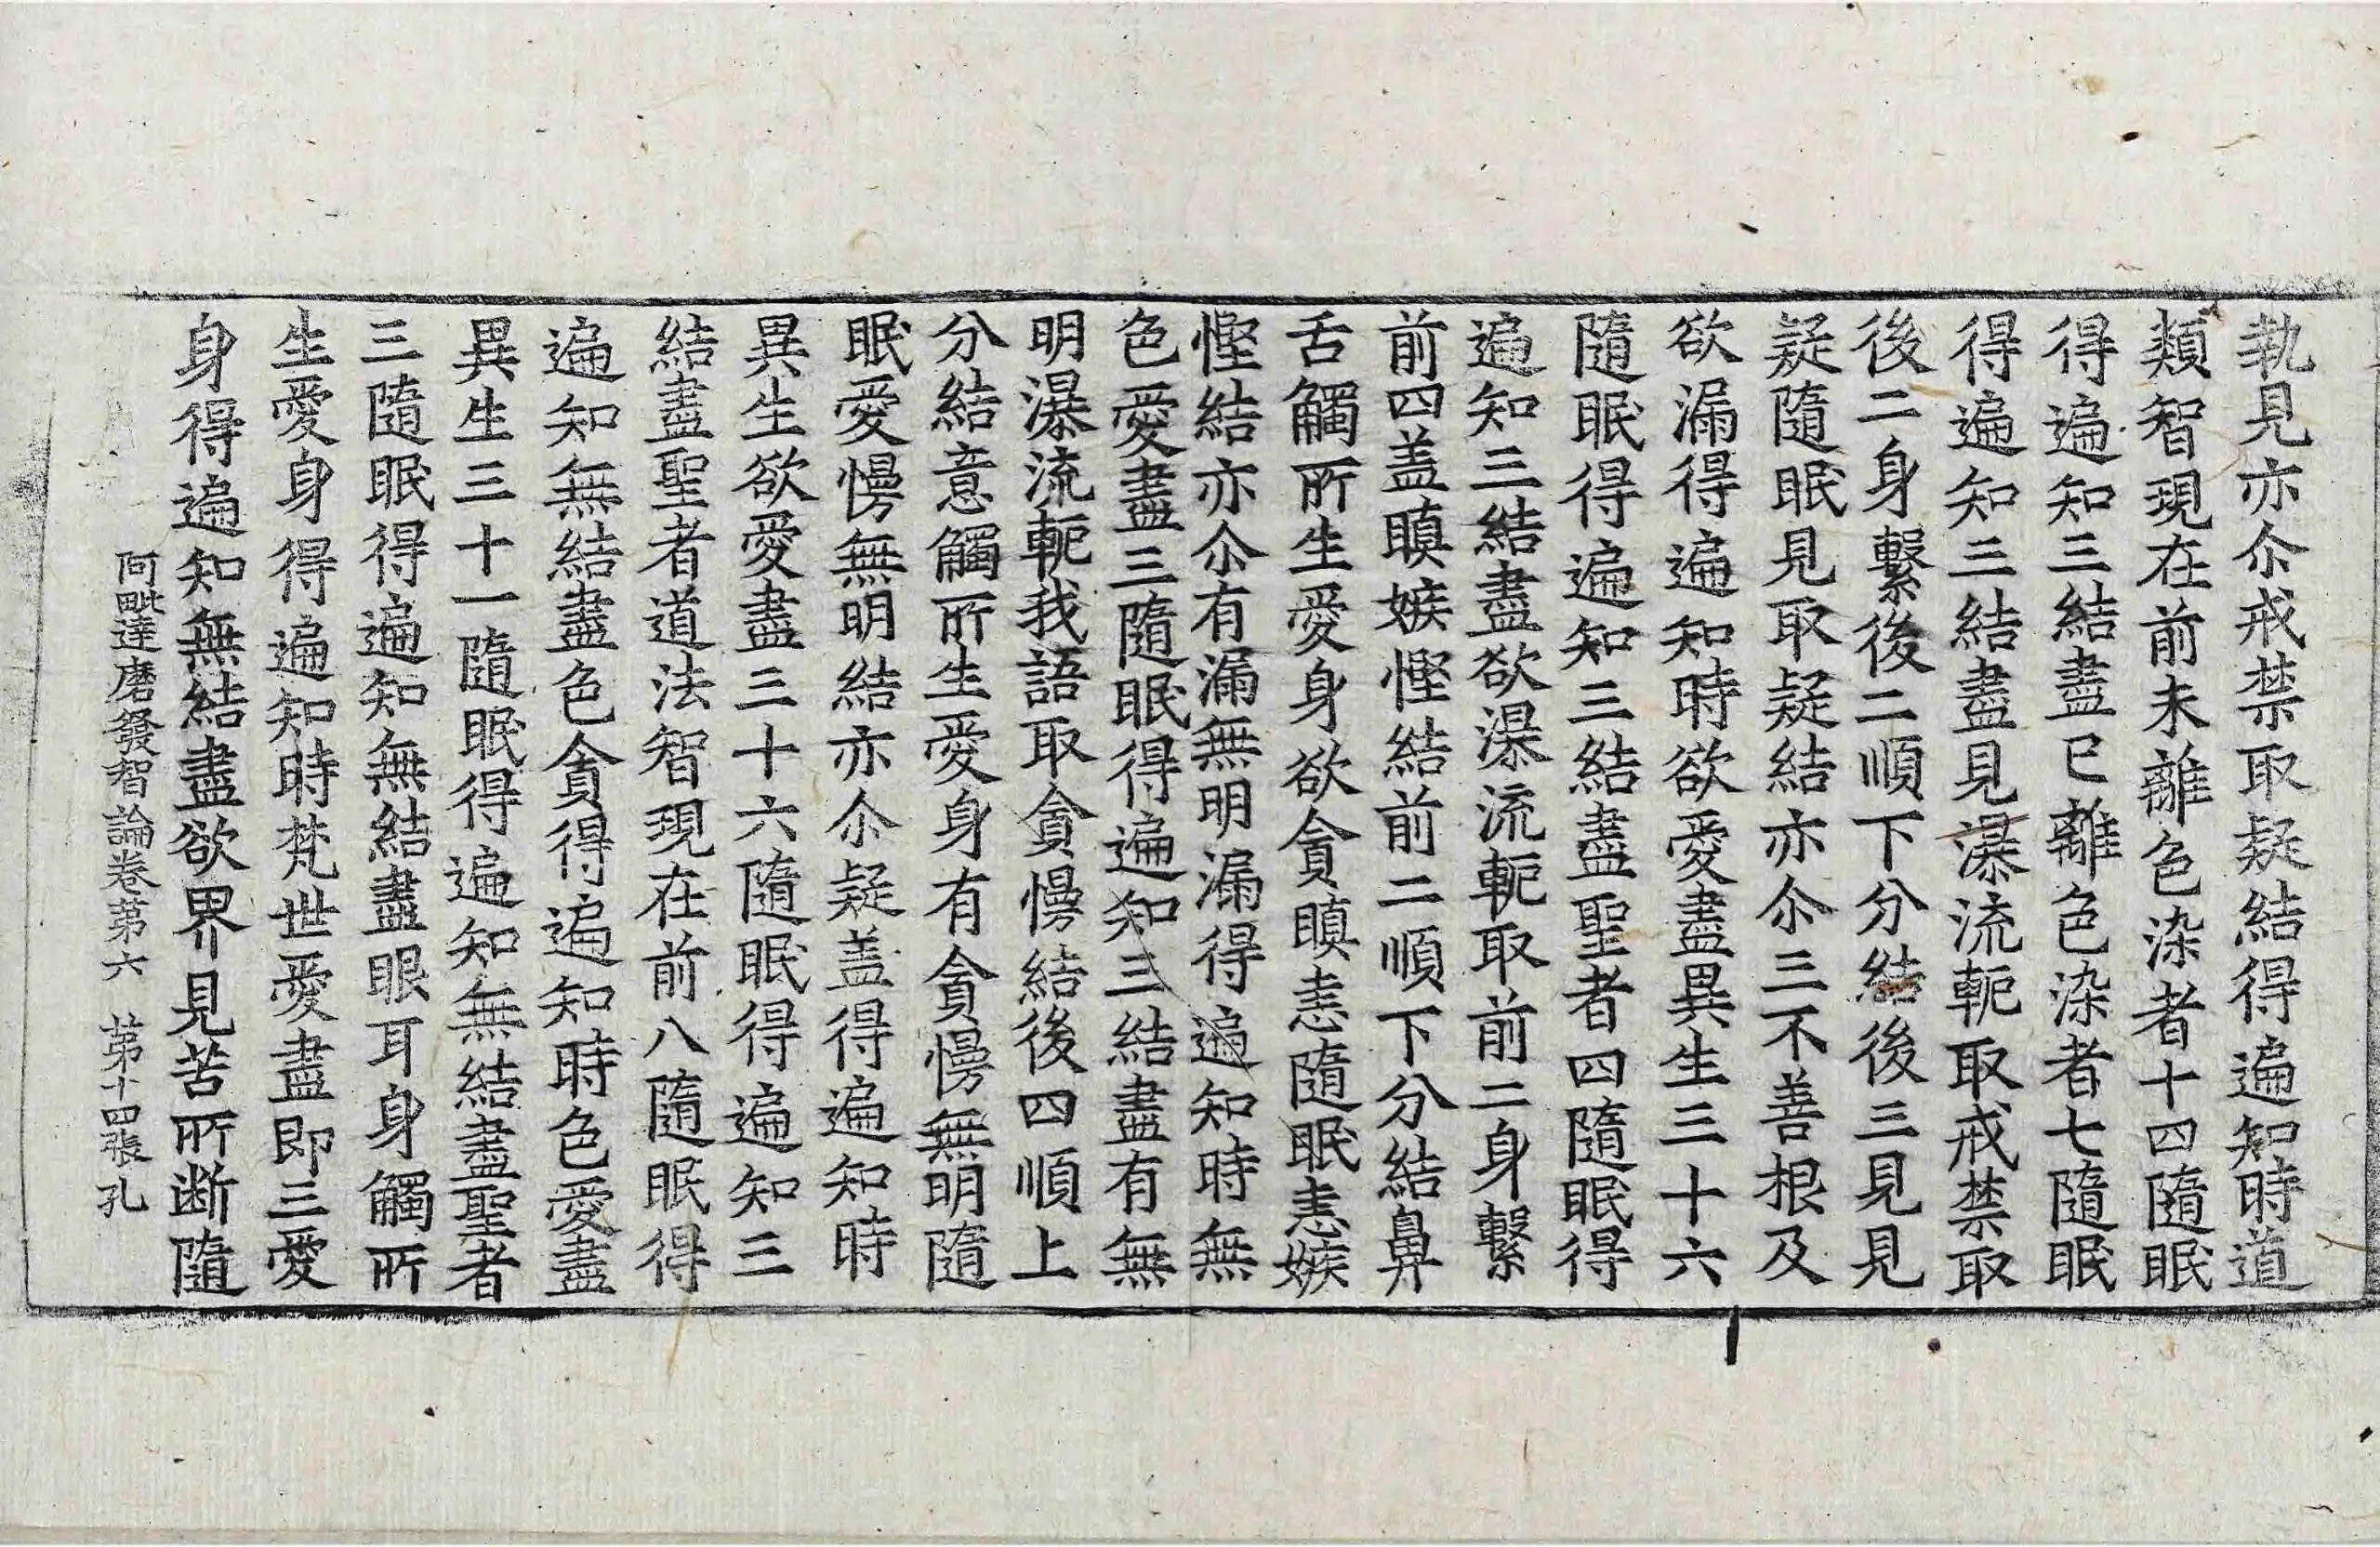 執見亦尒戒禁取疑結得遍知時道
類智現在前未離色染者十四隨眠
得遍知三結盡已離色染者七隨眠
得遍知三結盡見瀑流軛取戒禁取
後二身繫後二順下分結後三見見
疑隨眠見取疑結亦尒三不善根及
欲漏得遍知時欲愛盡異生三十六
隨眠得遍知三結盡聖者四隨眠得
遍知三結盡欲瀑流軛取前二身繫
前四盖瞋嫉慳結前二順下分結鼻
舌觸所生愛身欲貪瞋恚隨眠恚嫉
慳結亦尒有漏無明漏得遍知時無
色愛盡三隨眠得遍知三結盡有無
明瀑流軛我語取貪慢結後四順上
分結意觸所生愛身有貪慢無明隨
眠愛慢無明結亦尒疑盖得遍知時
異生欲愛盡三十六隨眠得遍知三
結盡聖者道法智現在前八隨眠得
遍知無結盡色貪得遍知時色愛盡
異生三十一隨眠得遍知無結盡聖者
三隨眠得遍知無結盡眼耳身觸所
生愛身得遍知時梵世愛盡即三愛
身得遍知無結盡欲界見苦所断隨
阿毗達磨發智論卷苐六 苐十四張 孔